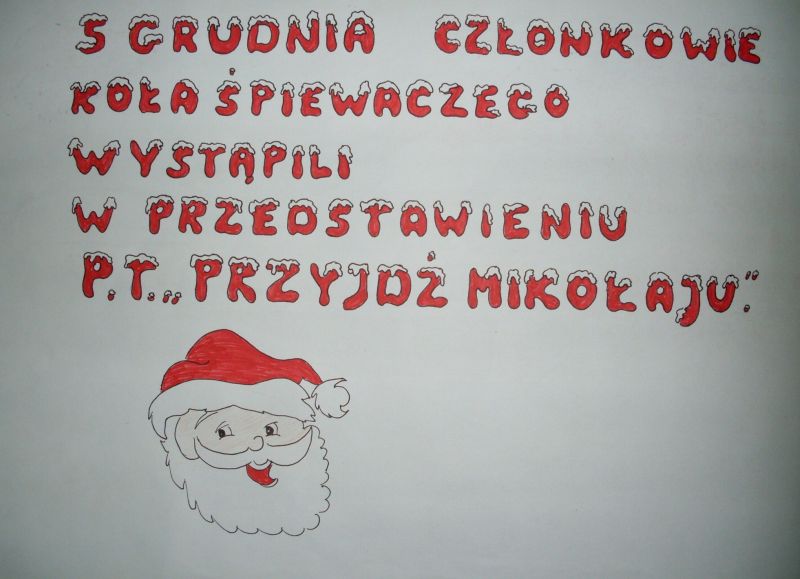 5 GRUDNIA CZŁONKOWIE
KOŁA ŚPIEWACZEGO
WYSTĄPILI
W PRZEDSTAWIENIU
P.T. „PRZYJDŹ MIKOŁAJU”.